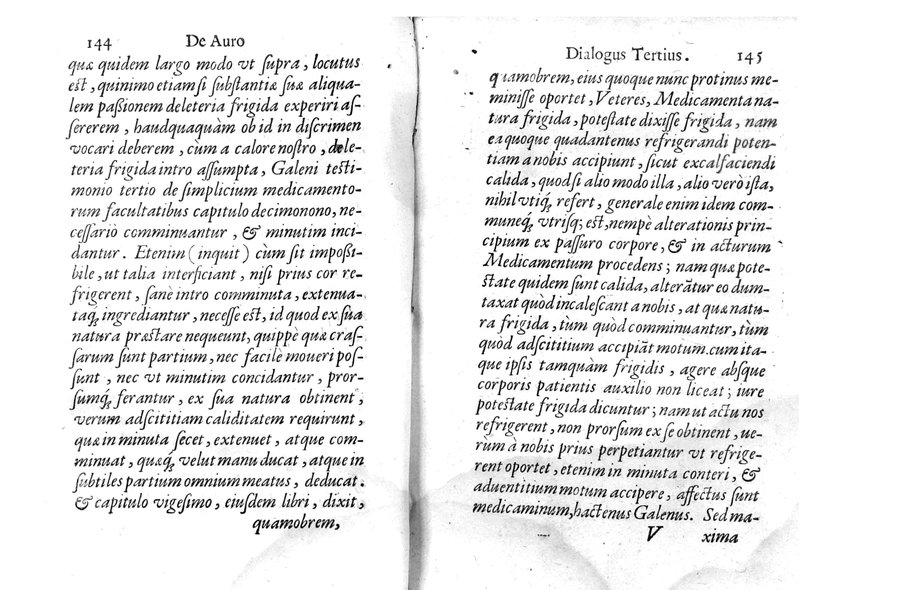 144 De Auro
quæ quidem largo modo vt supra, locutus
est, quinimo etiam si substantiæ suæ aliqua-
lem passionem deleteria frigida experiri as-
sererem, haudquaquàm ob id in discrimen
vocari deberem, cùm a calore nostro, dele-
teria frigida intro assumpta, Galeni testi-
monio tertio de simplicium medicamento-
rum facultatibus capitulo decimonono, ne-
cessariò comminuantur, & minutim inci-
dantur. Etenim (inquit) cùm sit impossi-
bile, ut talia interficiant, nisi prius cor re-
frigerent, sanè intro comminuta, extenua-
taq́; ingrediantur, necesse est, id quod ex sua
natura præstare nequeunt, quippè quæ cras-
sarum sunt partium, nec facilè moueri pos-
sunt, nec vt minutim concidantur, pror-
sumq́; ferantur, ex sua natura obtinent,
verum adscititiam caliditatem requirunt,
quæ in minuta secet, extenuet, atque com-
minuat, quæq́; velut manu ducat, atque in
subtiles partium omnium meatus, deducat.
& capitulo vigesimo, eiusdem libri, dixit,
quamobrem,
Dialogus Tertius. 145
quamobrem, eius quoque nunc protinus me-
minisse oportet, Veteres, Medicamenta na-
tura frigida, potestate dixisse frigida, nam
ea quoque quadantenus refrigerandi poten-
tiam a nobis accipiunt, sicut excalfaciendi
calida, quod si alio modo illa, alio verò ista,
nihil vtiq́; refert, generale enim idem com-
muneq́; vtrisq; est, nempè alterationis prin-
cipium ex passuro corpore, & in acturum
Medicamentum procedens; nam quæ pote-
state quidem sunt calida, alterãtur eo dum-
taxat quòd incalescant a nobis, at quæ natu-
ra frigida, tùm quòd comminuantur, tùm
quòd adscititium accipiãt motum. cum ita-
que ipsis tamquàm frigidis, agere absque
corporis patientis auxilio non liceat; iure
potestate frigida dicuntur; nam ut actu nos
refrigerent, non prorsum ex se obtinent, ue-
rùm à nobis prius perpetiantur vt refrige-
rent oportet, etenim in minuta conteri, &
aduentitium motum accipere, affectus sunt
medicaminum, hactenus Galenus. Sed ma-
V xima